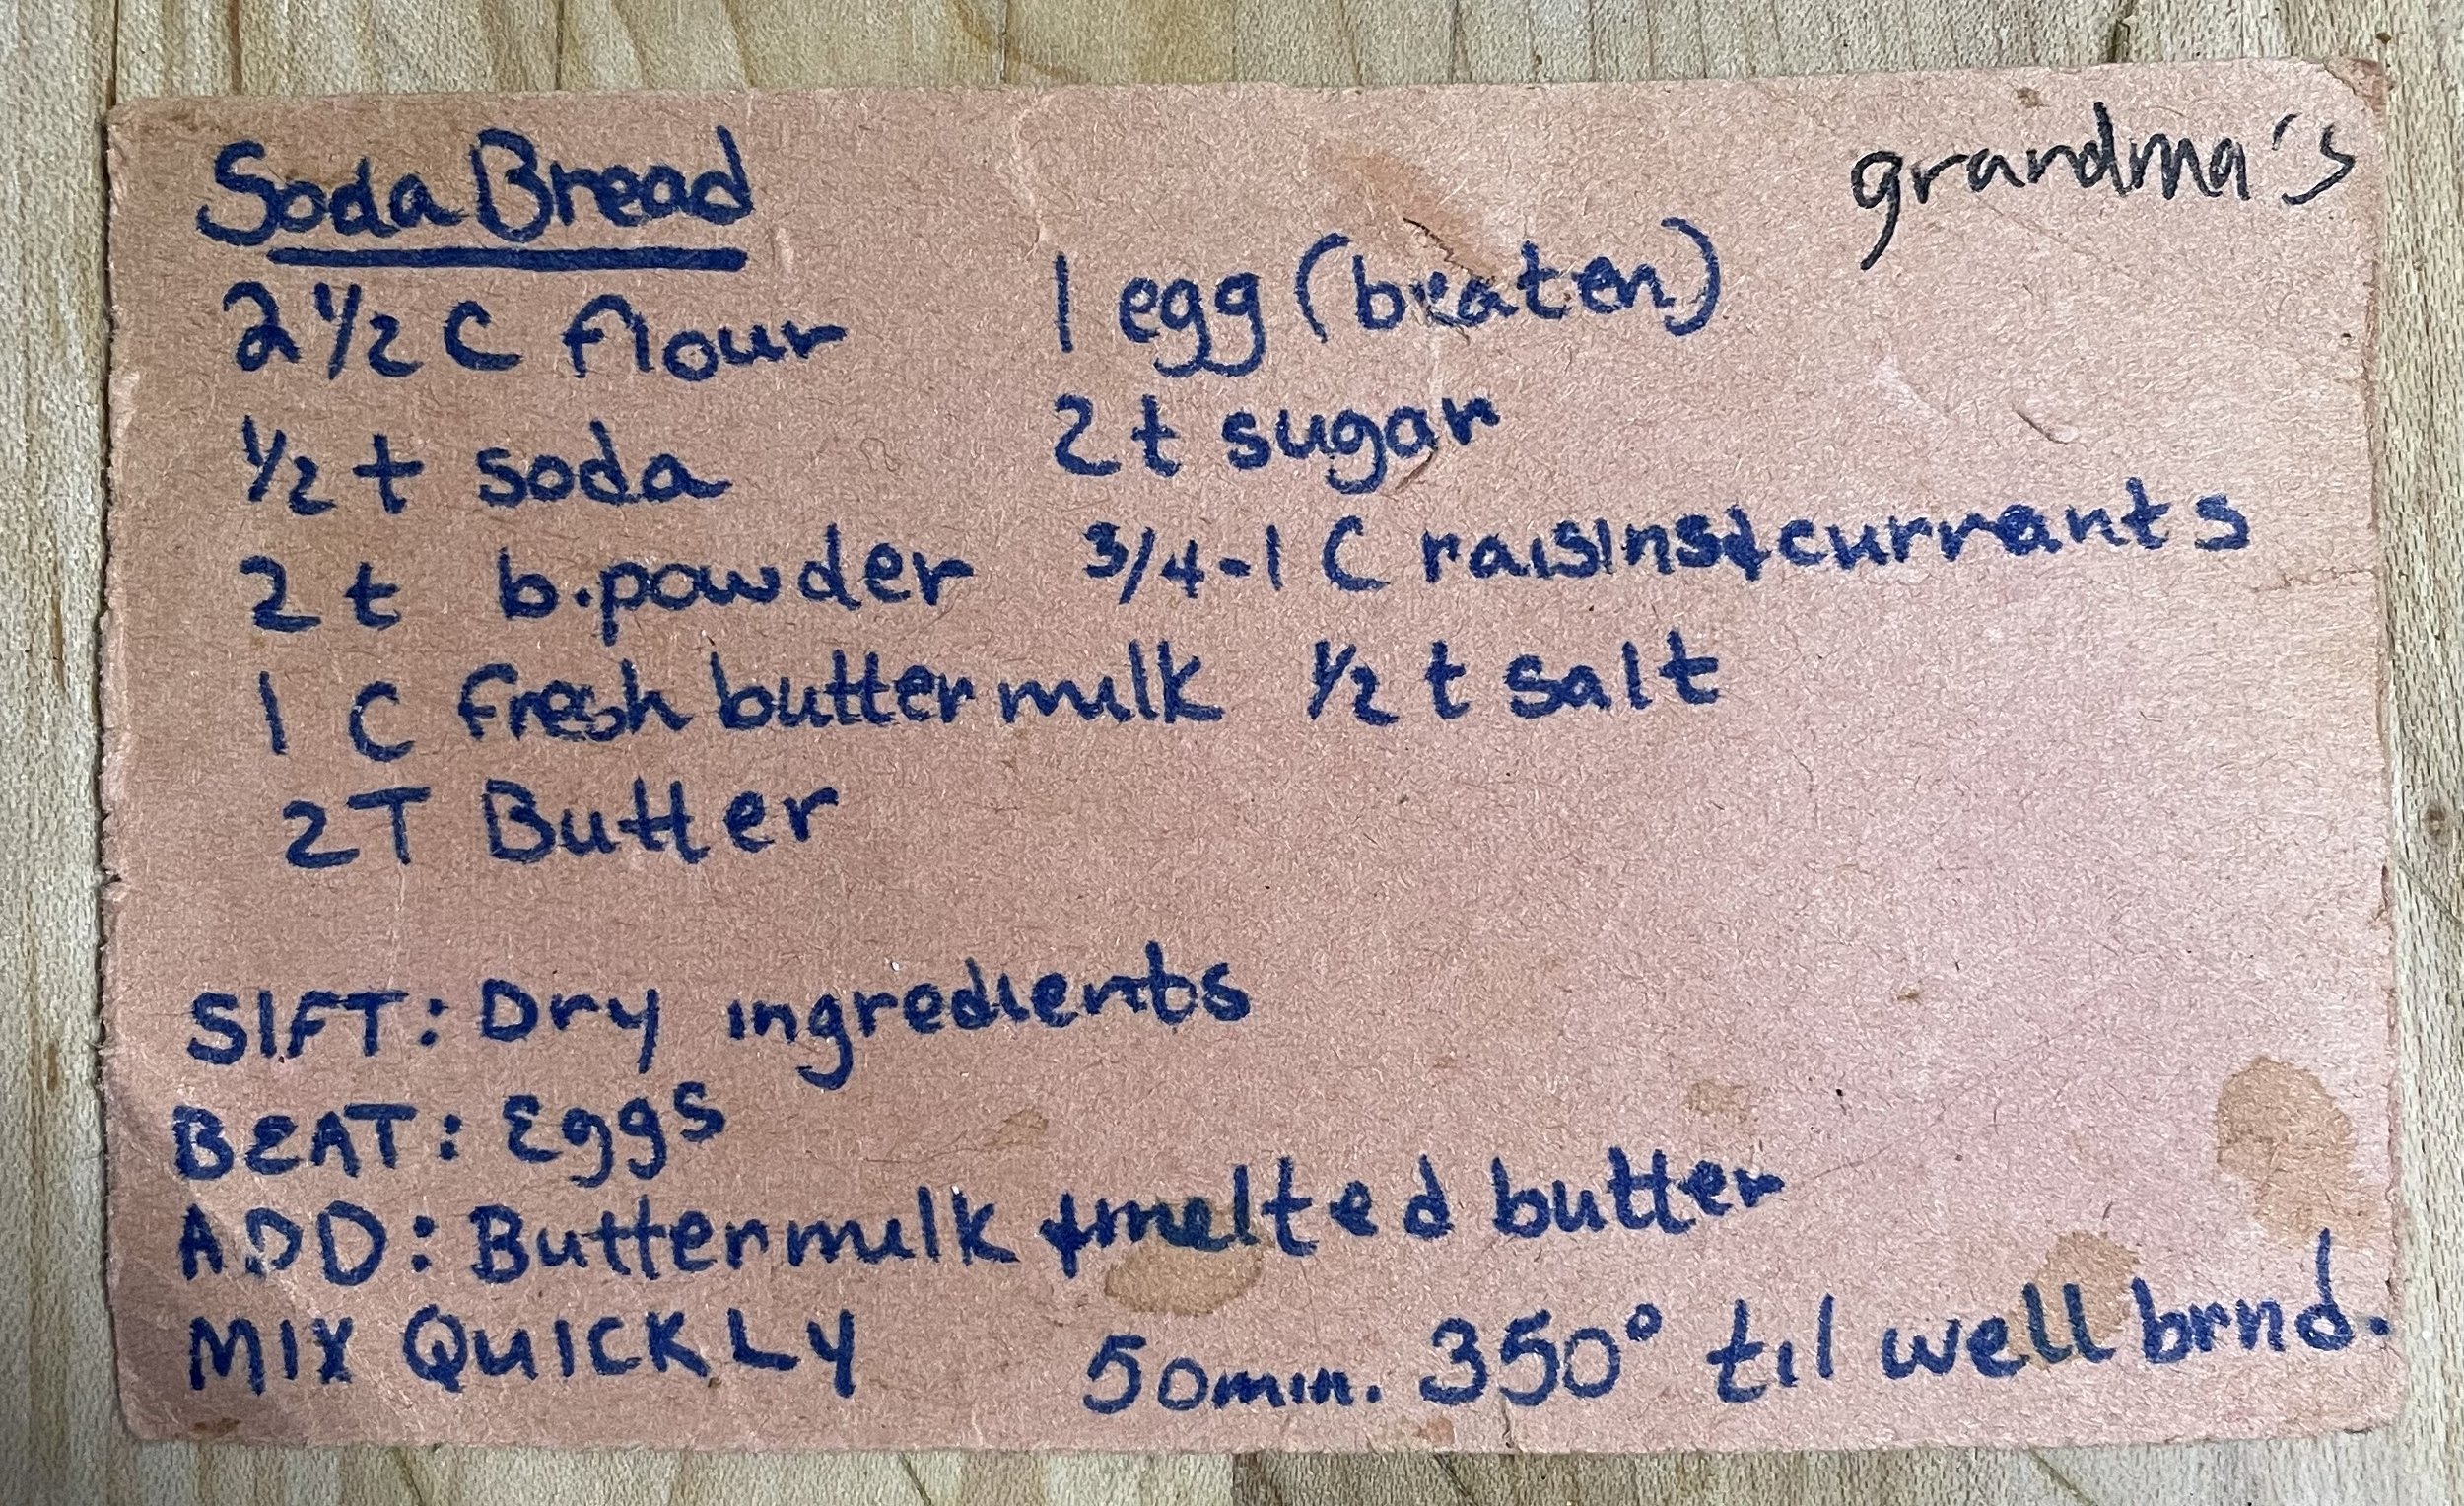 Soda Bread
grandma's
2 1/2 C flour
1 egg (beaten)
1/2 t soda
2 t sugar
2 t b.powder
3/4-1 C raisins & currants
1 C fresh buttermilk
1/2 t salt
2T Butter
SIFT: Dry ingredients
BEAT: Eggs
ADD: Buttermilk & melted butter
MIX QUICKLY
50min. 350° til well brnd.